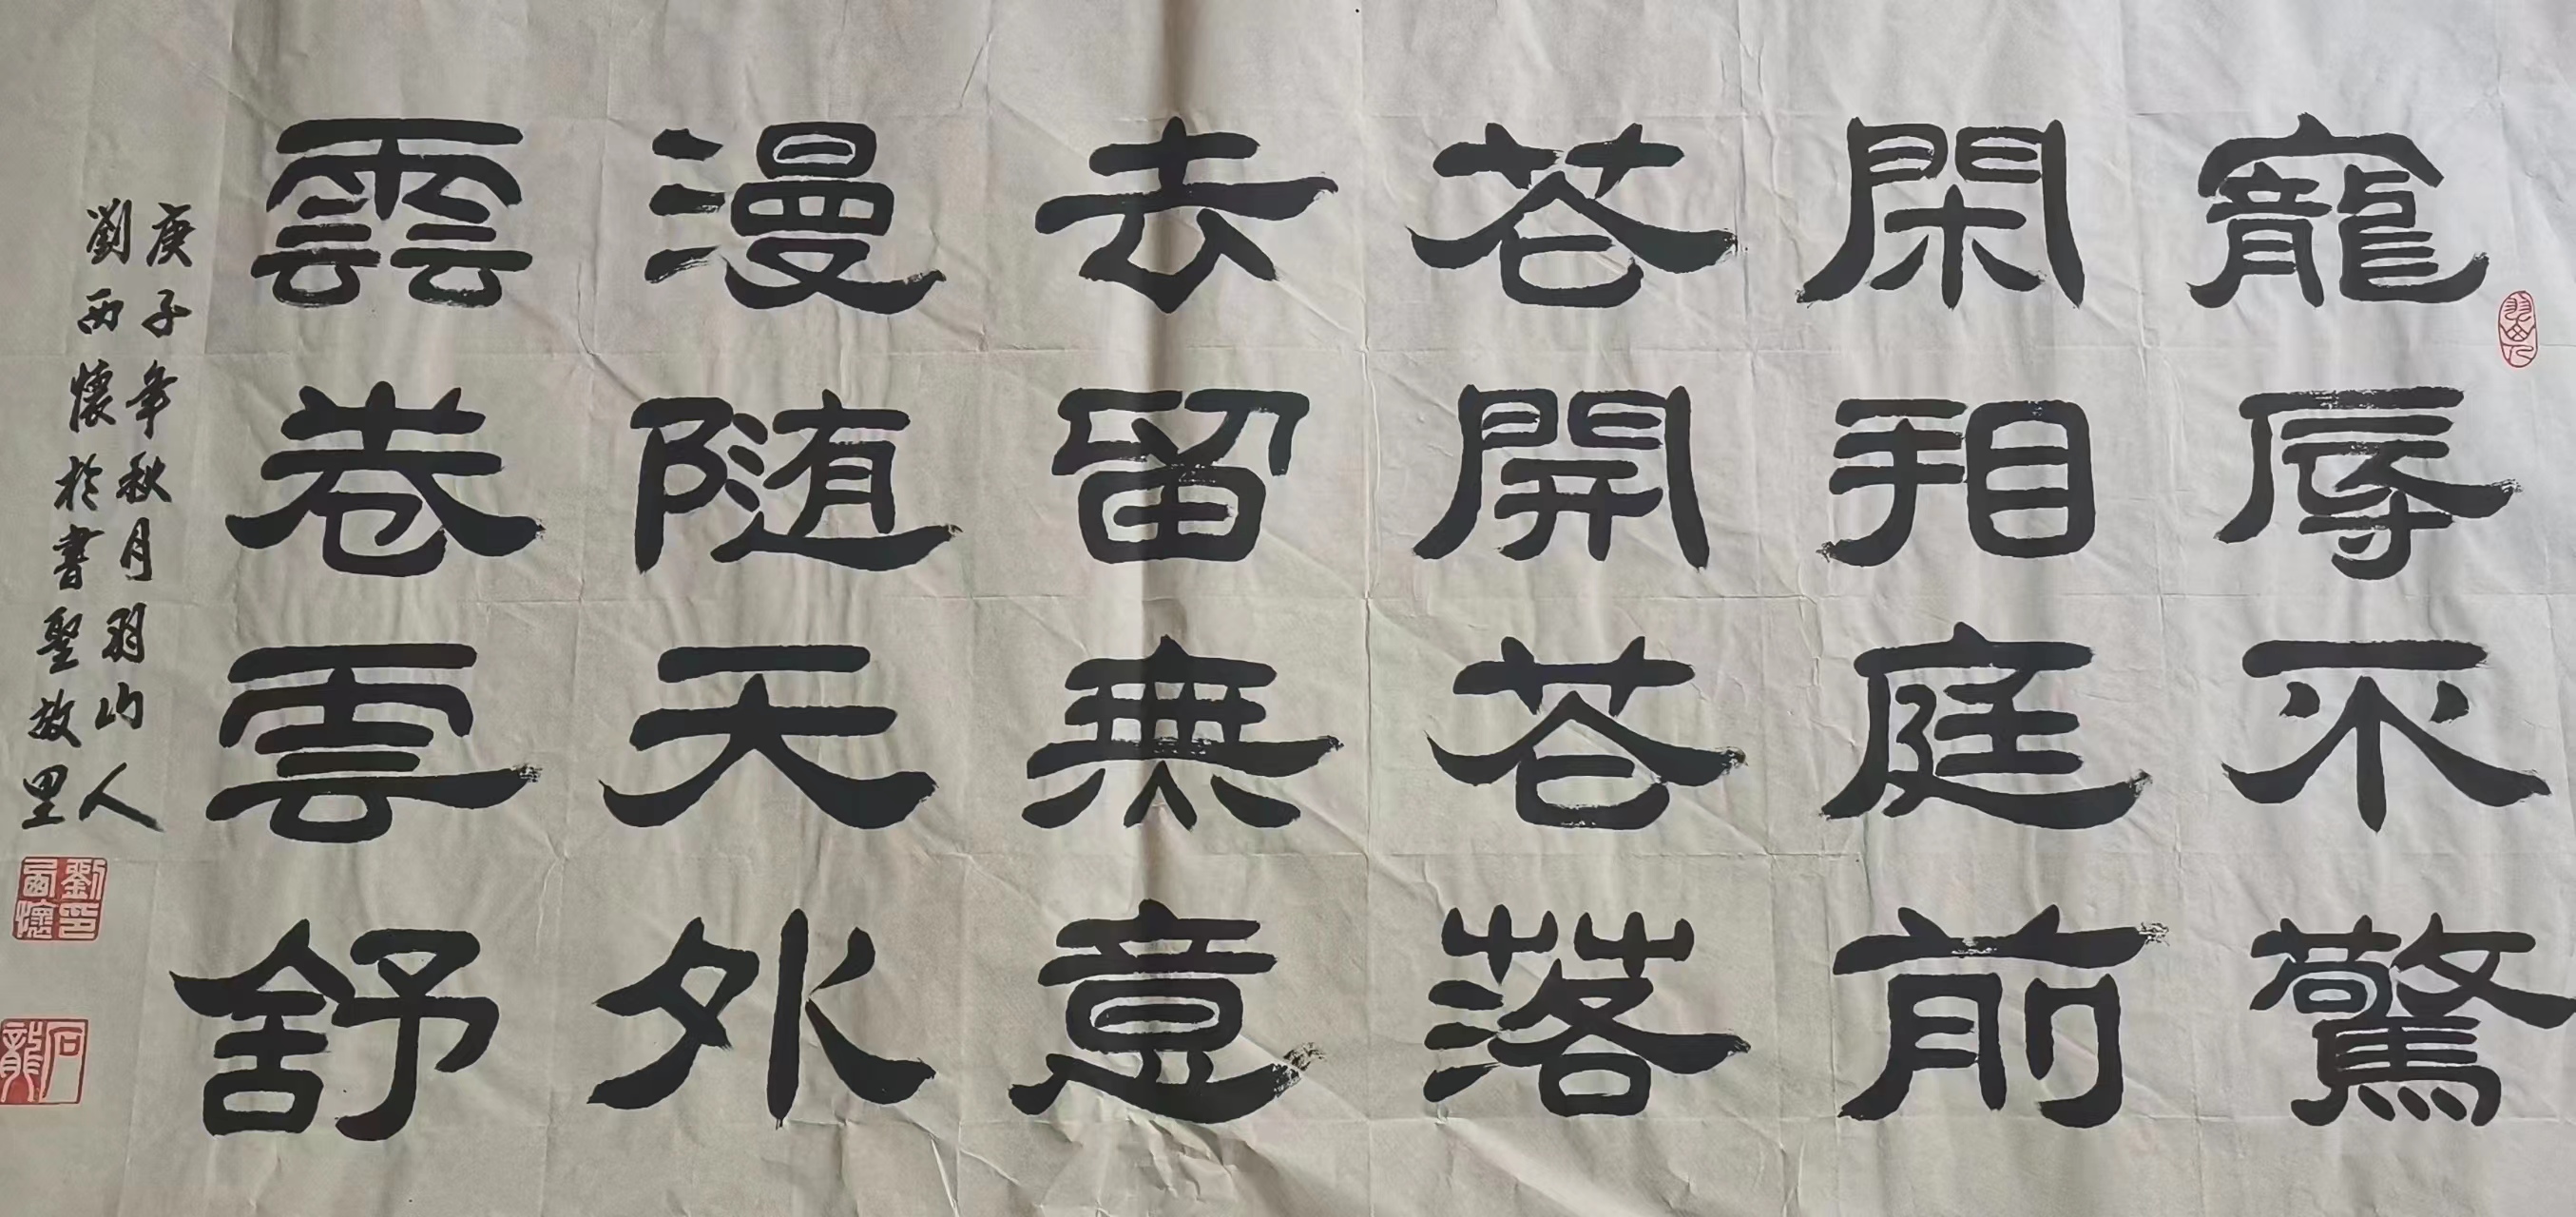 羽山人
寵辱不驚
閑看庭前
花開花落
去留無意
漫随天外
雲卷雲舒
庚子年秋月羽山人
劉西懷於書聖故里
劉印西懷
石龍